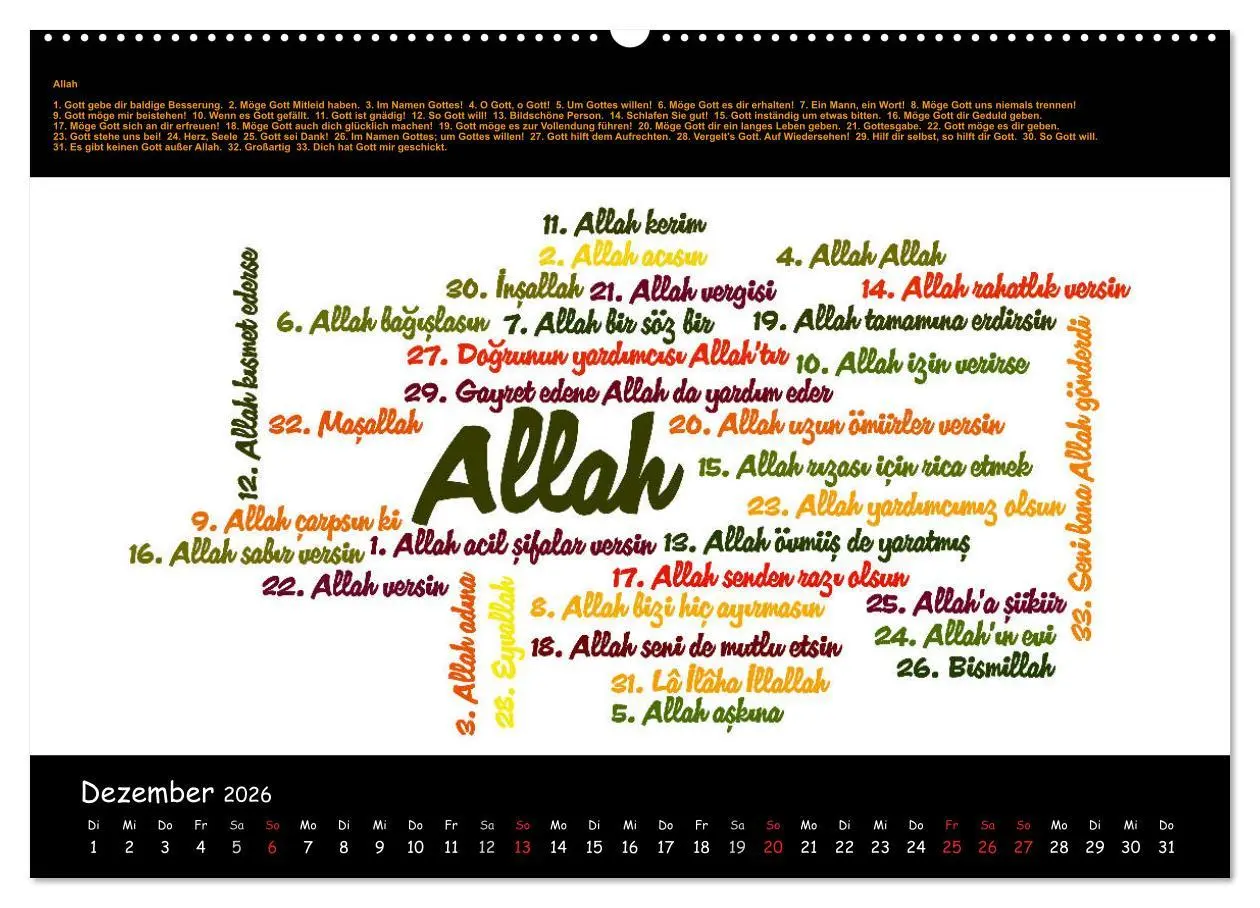 Allah
1. Gott gebe dir baldige Besserung. 2. Möge Gott Mitleid haben. 3. Im Namen Gottes! 4. O Gott, o Gott! 5. Um Gottes willen! 6. Möge Gott es dir erhalten! 7. Ein Mann, ein Wort! 8. Möge Gott uns niemals trennen!
9. Gott möge mir beistehen! 10. Wenn es Gott gefällt. 11. Gott ist gnädig! 12. So Gott will! 13. Bildschöne Person. 14. Schlafen Sie gut! 15. Gott inständig um etwas bitten. 16. Möge Gott dir Geduld geben.
17. Möge Gott sich an dir erfreuen! 18. Möge Gott auch dich glücklich machen! 19. Gott möge es zur Vollendung führen! 20. Möge Gott dir ein langes Leben geben. 21. Gottesgabe. 22. Gott möge es dir geben.
23. Gott stehe uns bei! 24. Herz, Seele 25. Gott sei Dank! 26. Im Namen Gottes; um Gottes willen! 27. Gott hilft dem Aufrechten. 28. Vergelt's Gott. Auf Wiedersehen! 29. Hilf dir selbst, so hilft dir Gott. 30. So Gott will.
31. Es gibt keinen Gott außer Allah. 32. Großartig 33. Dich hat Gott mir geschickt.
11. Allah kerim
2. Allah acısın
4. Allah Allah
30. İnşallah
21. Allah vergisi
14. Allah rahatlık versin
6. Allah bağışlasın
7. Allah bir söz bir
19. Allah tamamına erdirsin
27. Doğrunun yardımcısı Allah'tır
10. Allah izin verirse
29. Gayret edene Allah da yardım eder
12. Allah kısmet ederse
32. Maşallah
Allah
20. Allah uzun ömürler versin
15. Allah rızası için rica etmek
23. Allah yardımcımız olsun
33. Seni bana Allah gönderdi
9. Allah çarpsın ki
16. Allah sabır versin
1. Allah acil şifalar versin
13. Allah övmüş de yaratmış
22. Allah versin
17. Allah senden razı olsun
3. Allah adına
28. Eyvallah
8. Allah bizi hiç ayırmasın
25. Allah'a şükür
18. Allah seni de mutlu etsin
24. Allah'ın evi
26. Bismillah
31. Lâ İlâha İllallah
5. Allah aşkına
Dezember 2026
Di Mi Do Fr Sa So Mo Di Mi Do Fr Sa So Mo Di Mi Do Fr Sa So Mo Di Mi Do Fr Sa So Mo Di Mi Do
1 2 3 4 5 6 7 8 9 10 11 12 13 14 15 16 17 18 19 20 21 22 23 24 25 26 27 28 29 30 31